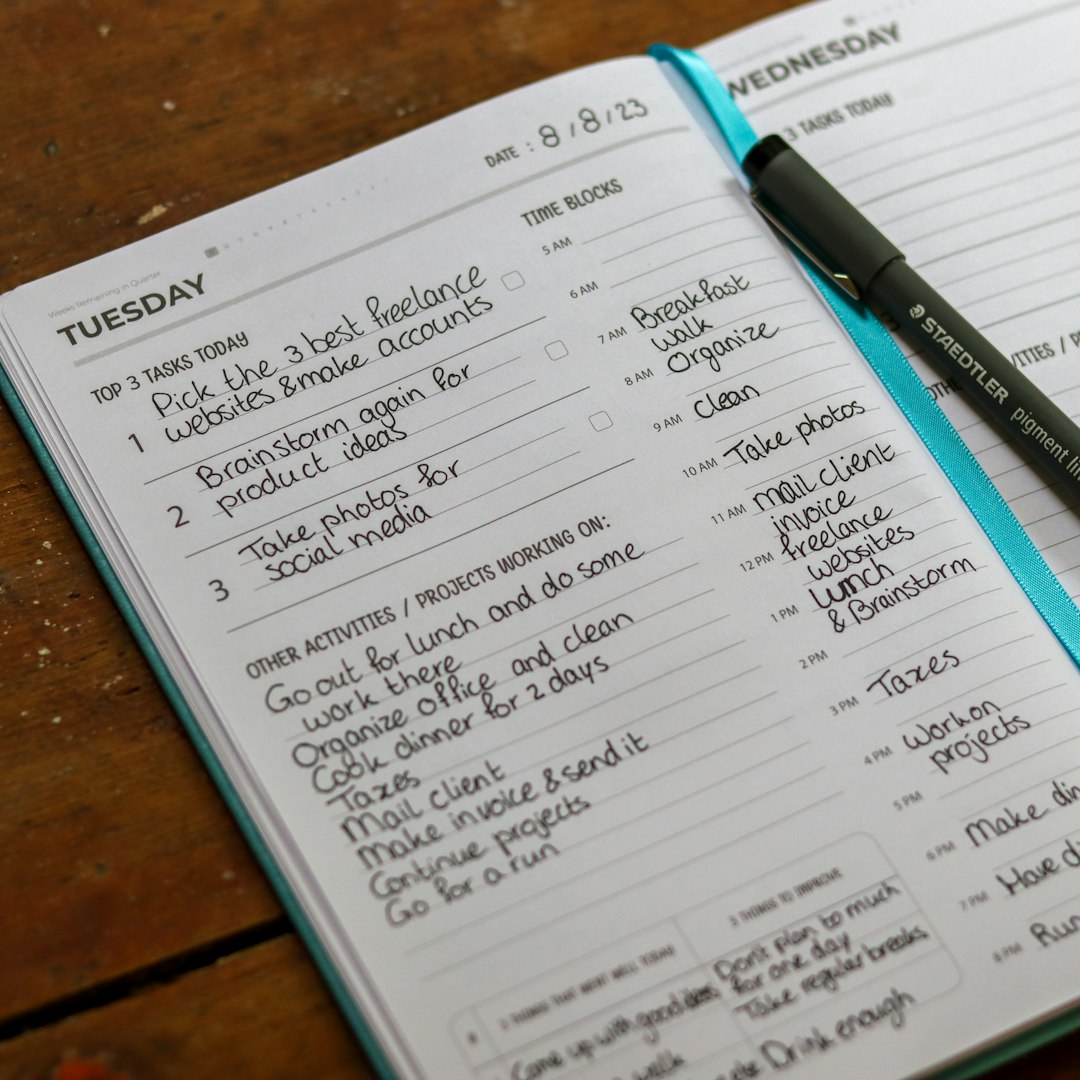 Weeks Remaining in Quarter
TUESDAY
DATE : 8/8/23
TOP 3 TASKS TODAY
1 Pick the 3 best freelance
websites & make accounts
2 Brainstorm again for
product ideas
3 Take photos for
social media
OTHER ACTIVITIES / PROJECTS WORKING ON:
Go out for lunch and do some
work there
Organize office and clean
Cook dinner for 2 days
Taxes
Mail client
Make invoice & send it
Continue projects
Go for a run
TIME BLOCKS
5 AM
6 AM
7 AM Breakfast
walk
8 AM Organize
9 AM Clean
10 AM Take photos
11 AM mail client
invoice
12 PM freelance
websites
1 PM Lunch
& Brainstorm
2 PM
3 PM Taxes
4 PM Work on
projects
5 PM
6 PM Make din
7 PM Have d
8 PM Run
3 THINGS THAT WENT WELL TODAY
Come up with good
walk
3 THINGS TO IMPROVE
Don't plan to much
for one day
Take regular breaks
Drink enough
WEDNESDAY
3 TASKS TODAY
OTHE
ITIES / P
STAEDTLER
pigment li